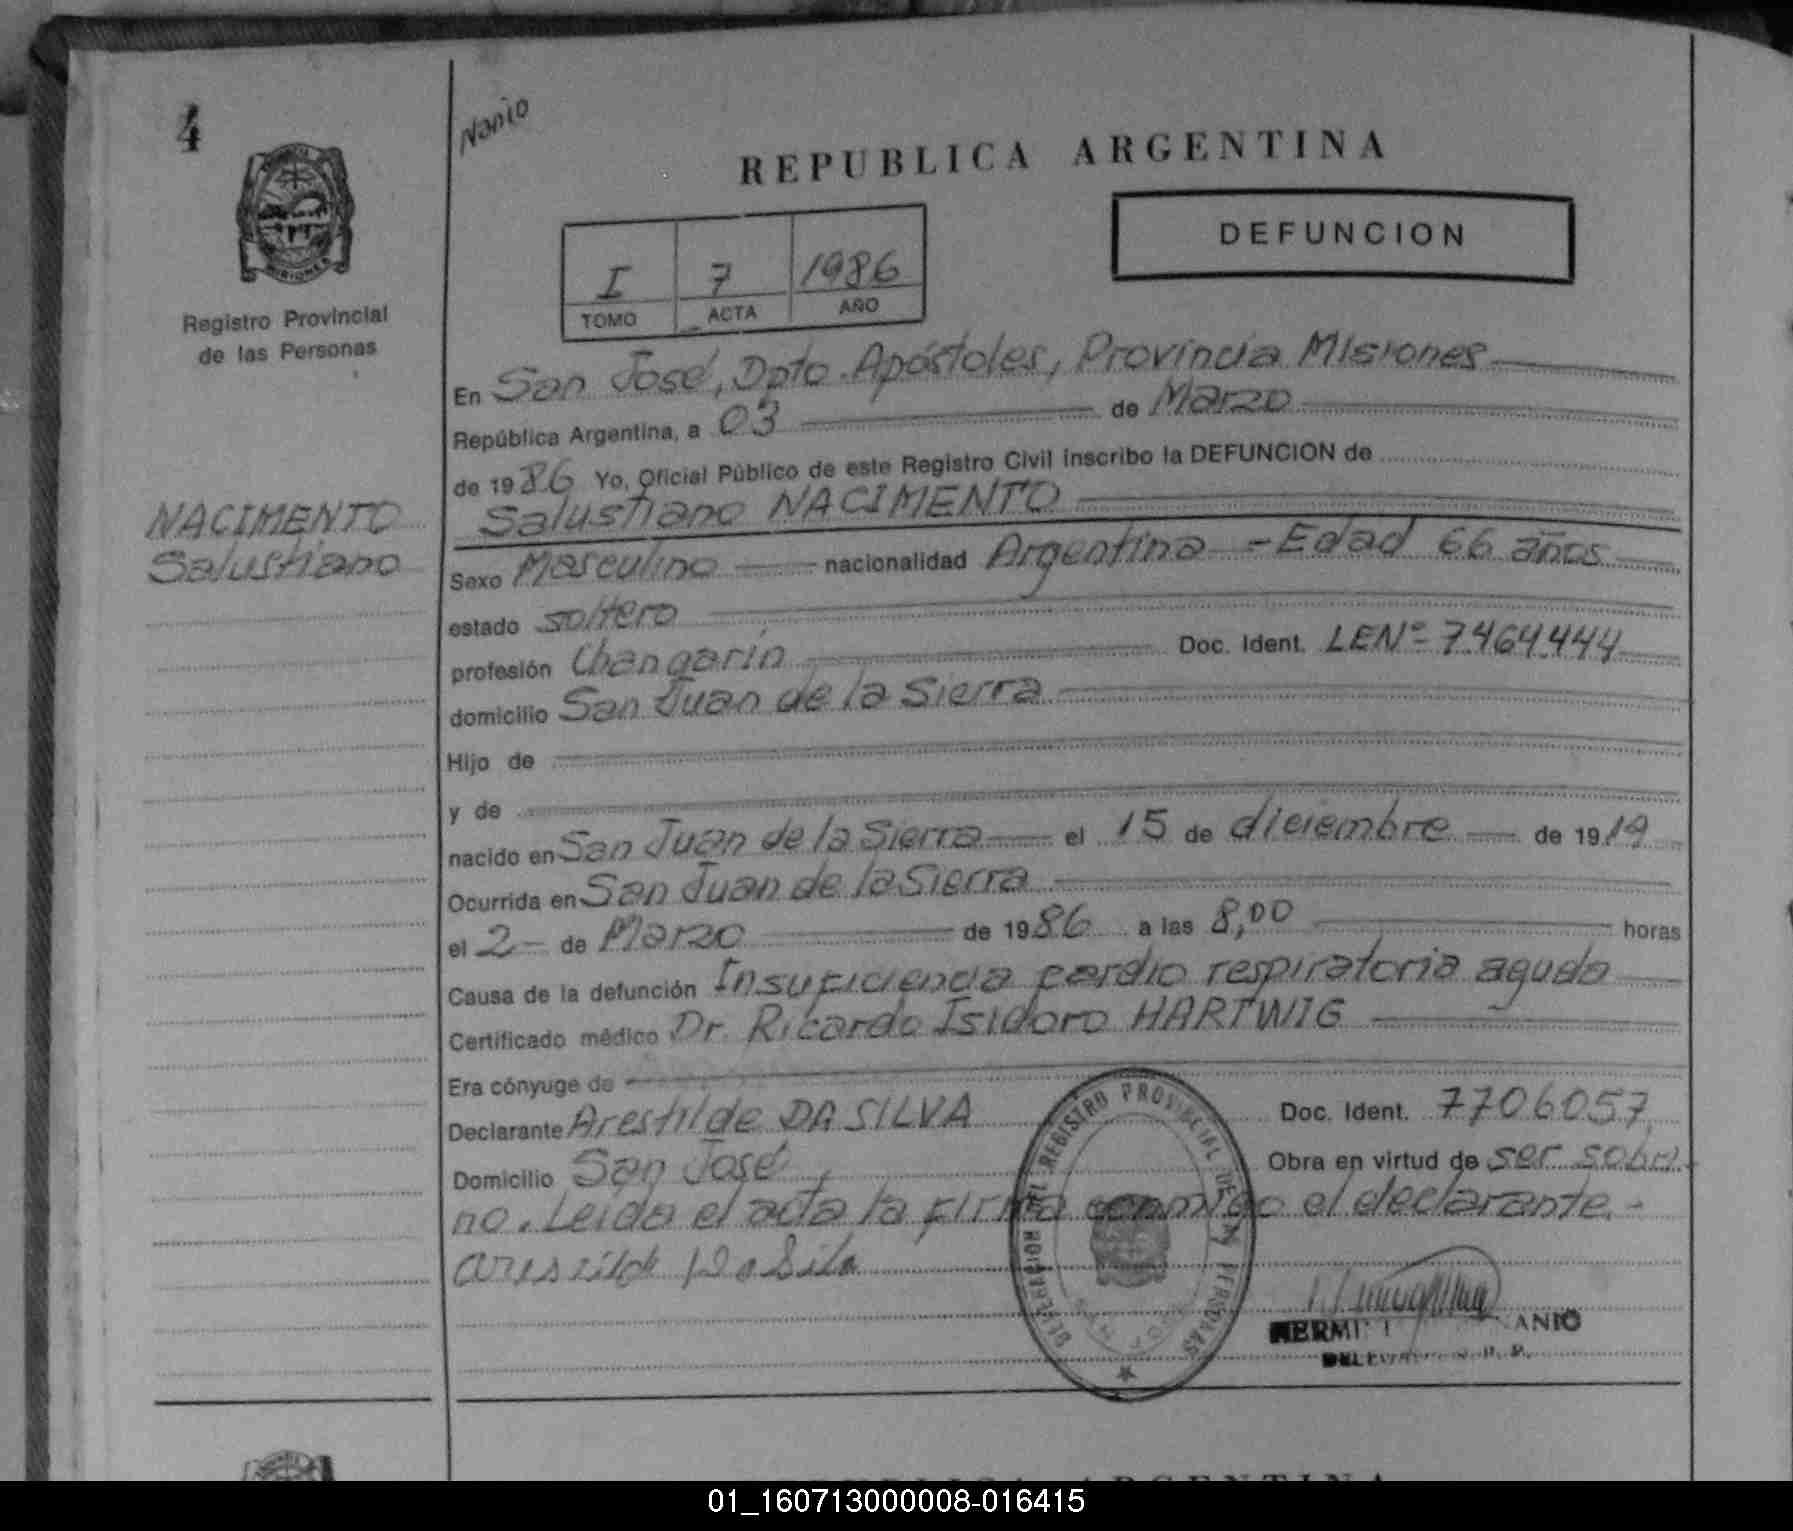 4
Nanio
REPUBLICA ARGENTINA
DEFUNCION
MISIONES
Registro Provincial
de las Personas
I 7 1986
TOMO ACTA AÑO
En San José, Dpto. Apóstoles, Provincia Misiones
República Argentina, a 03 de Marzo
de 1986 Yo, Oficial Público de este Registro Civil inscribo la DEFUNCION de
NACIMENTO
Salustiano
Salustiano NACIMENTO
Sexo Masculino nacionalidad Argentina - Edad 66 años
estado soltero
profesión Changarín Doc. Ident. LENº 7.464.444
domicilio San Juan de la Sierra
Hijo de
y de
nacido en San Juan de la Sierra el 15 de diciembre de 1919
Ocurrida en San Juan de la Sierra
el 2- de Marzo de 1986 a las 8,00 horas
Causa de la defunción Insuficiencia cardio respiratoria aguda
Certificado médico Dr. Ricardo Isidoro HARTWIG
Era cónyuge de
Declarante Arestilde DA SILVA Doc. Ident. 7706057,
Domicilio San José, Obra en virtud de ser sobri-
no. Leida el acta la firma conmigo el declarante.-
DELEGACION DEL REGISTRO PROVINCIAL DE LAS PERSONAS
REPUBLICA ARGENTINA
01_160713000008-016415